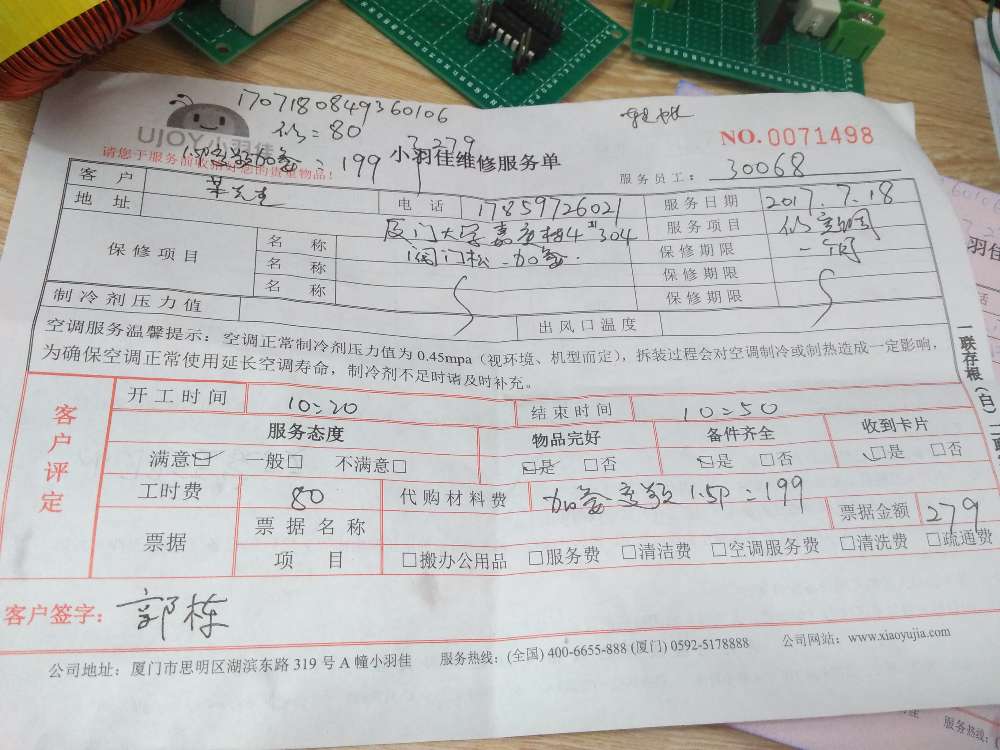 1707180849360106
修=80
UJOY小羽佳
NO.0071498
请您于服务前收拾好您的贵重物品!
1.5P变频加氟=199
279
小羽佳维修服务单
服务员工: 30068
客户
先生
电话 17859726021
服务日期 2017.7.18
地址
厦门大学嘉庚楼4#304
服务项目 修空调
保修项目
名称 阀门松.加氟.
保修期限 一个月
名称
保修期限
名称
保修期限
制冷剂压力值
出风口温度
空调服务温馨提示:空调正常制冷剂压力值为 0.45mpa(视环境、机型而定),拆装过程会对空调制冷或制热造成一定影响,
为确保空调正常使用延长空调寿命,制冷剂不足时请及时补充。
一联存根(白)
客户评定
开工时间 10:20
结束时间 10:50
服务态度 物品完好 备件齐全 收到卡片
满意☑ 一般□ 不满意□ ☑是 □否 ☑是 □否 ☑是 □否
工时费 80
代购材料费 加氟变频1.5P=199
票据金额 279
票据
票据名称
项目
□搬办公用品 □服务费 □清洁费 □空调服务费 □清洗费 □疏通费
客户签字: 郭栋
公司地址:厦门市思明区湖滨东路 319 号 A 幢小羽佳 服务热线:(全国) 400-6655-888 (厦门) 0592-5178888 公司网站:www.xiaoyujia.com
服务热线: